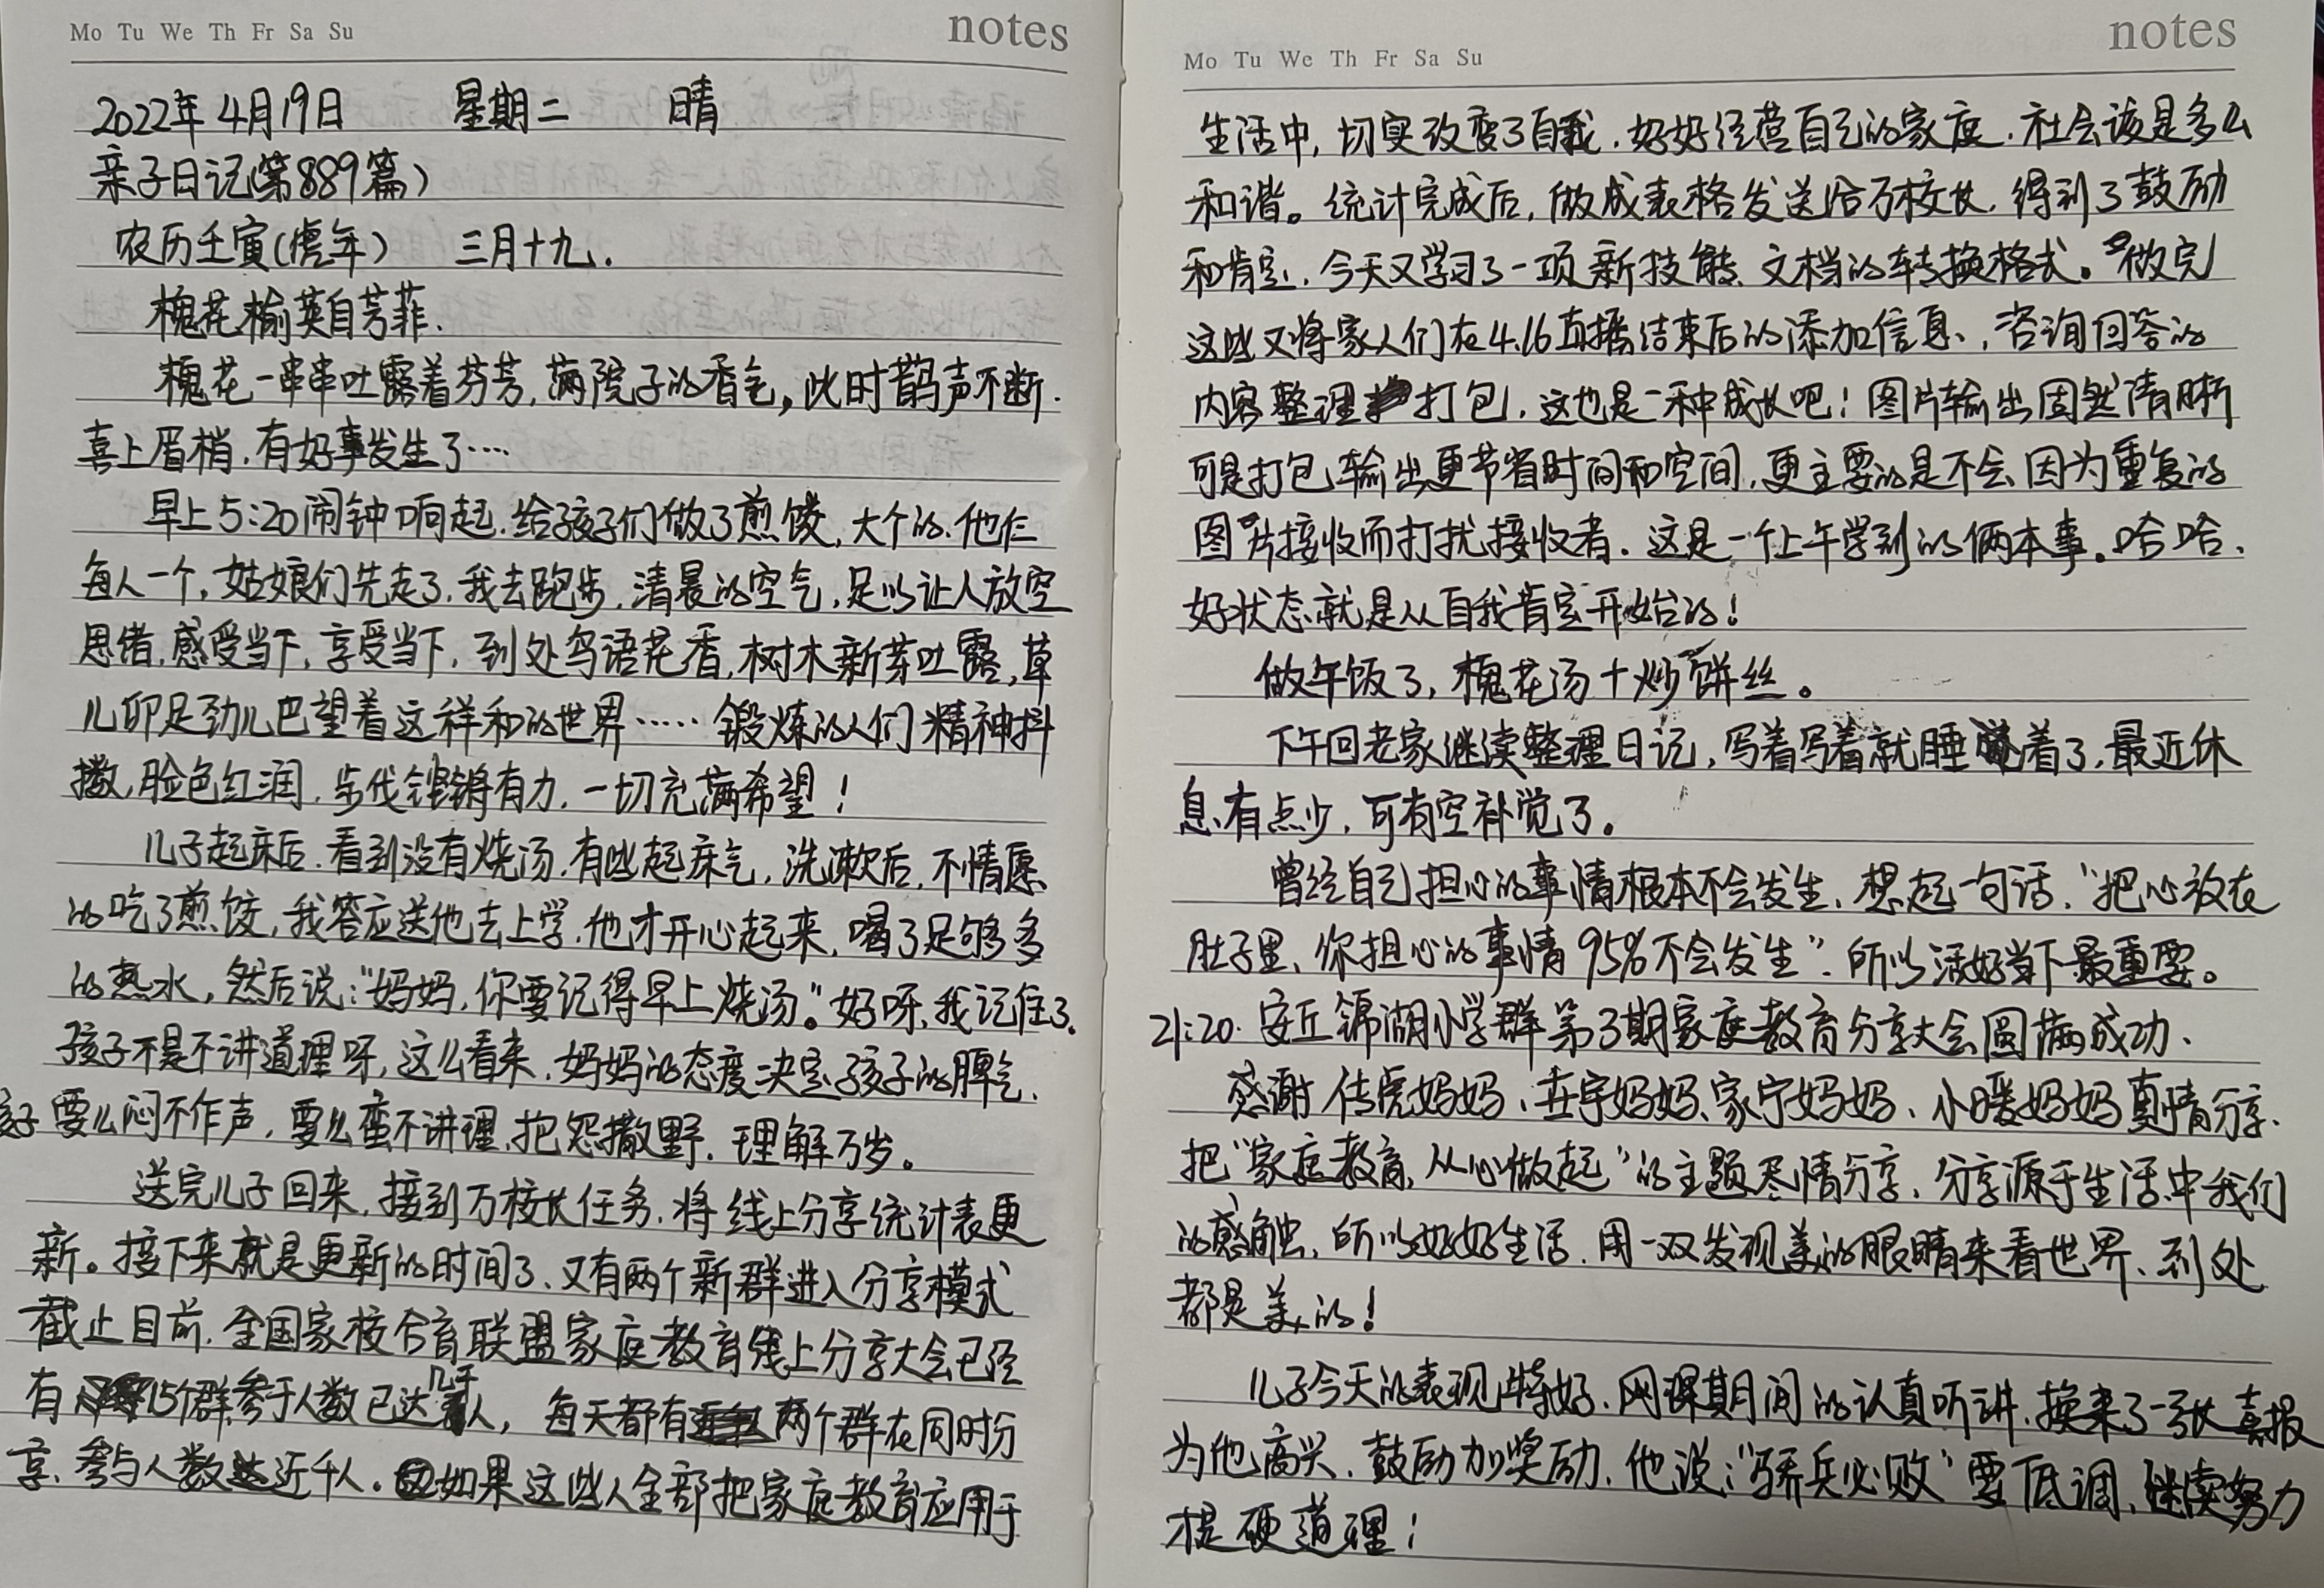 Mo Tu We Th Fr Sa Su
notes
2022年4月19日 星期二 晴
亲子日记(第889篇)
农历壬寅(虎年) 三月十九.
槐花榆荚自芳菲.
槐花一串串吐露着芬芳,满院子的香气,此时鹊声不断.
喜上眉梢.有好事发生了····
早上5:20闹钟响起.给孩子们做了煎饺,大个的.他仨
每人一个,姑娘们先走了.我去跑步.清晨的空气,足以让人放空
思绪,感受当下,享受当下,到处鸟语花香,树木新芽吐露,草
儿卯足劲儿巴望着这样和的世界……锻炼的人们精神抖
擞,脸色红润.步伐铿锵有力.一切充满希望!
儿子起床后.看到没有烧汤.有些起床气.洗漱后.不情愿
的吃了煎饺,我答应送他去上学.他才开心起来,喝了足够多
的热水,然后说:“妈妈,你要记得早上烧汤。”好呀,我记住了.
孩子不是不讲道理呀,这么看来.妈妈的态度决定孩子的脾气.
要么闷不作声.要么蛮不讲理.把怨撒野.理解万岁。
送完儿子回来.接到万校长任务.将线上分享统计表更
新。接下来就是更新的时间了、又有两个新群进入分享模式
截止目前.全国家校合育联盟家庭教育线上分享大会已经
有15个群,参于人数已达几千人,每天都有两个群在同时分
享.参与人数达近千人.如果这些人全部把家庭教育应用于
Mo Tu We Th Fr Sa Su
notes
生活中,切实改变了自我.好好经营自己的家庭.社会该是多么
和谐。统计完成后,做成表格发送给万校长.得到了鼓励
和肯定.今天又学习了一项新技能、文档的转换格式。做完
这些又将家人们在4.16直播结束后的添加信息、咨询回答的
内容整理打包,这也是一种成长吧!图片输出固然清晰
可是打包输出更节省时间和空间,更主要的是不会因为重复的
图片接收而打扰接收者.这是一个上午学到的俩本事。哈哈.
好状态就是从自我肯定开始的!
做午饭了,槐花汤+炒饼丝。
下午回老家继续整理日记,写着写着就睡着了.最近休
息有点少,可有空补觉了。
曾经自己担心的事情根本不会发生.想起一句话.“把心放在
肚子里、你担心的事情95%不会发生”.所以活好当下最重要。
21:20.安丘锦湖小学群第3期家庭教育分享大会圆满成功、
感谢传虎妈妈、垚宇妈妈、家宁妈妈、小暖妈妈真情分享.
把“家庭教育,从心做起”的主题尽情分享.分享源于生活中我们
的感触.所以好好生活.用一双发现美的眼睛来看世界、到处
都是美的!
儿子今天的表现特好.网课期间的认真听讲.换来了一张喜报
为他高兴.鼓励加奖励.他说:“骄兵必败”要低调、继续努力
才是硬道理!